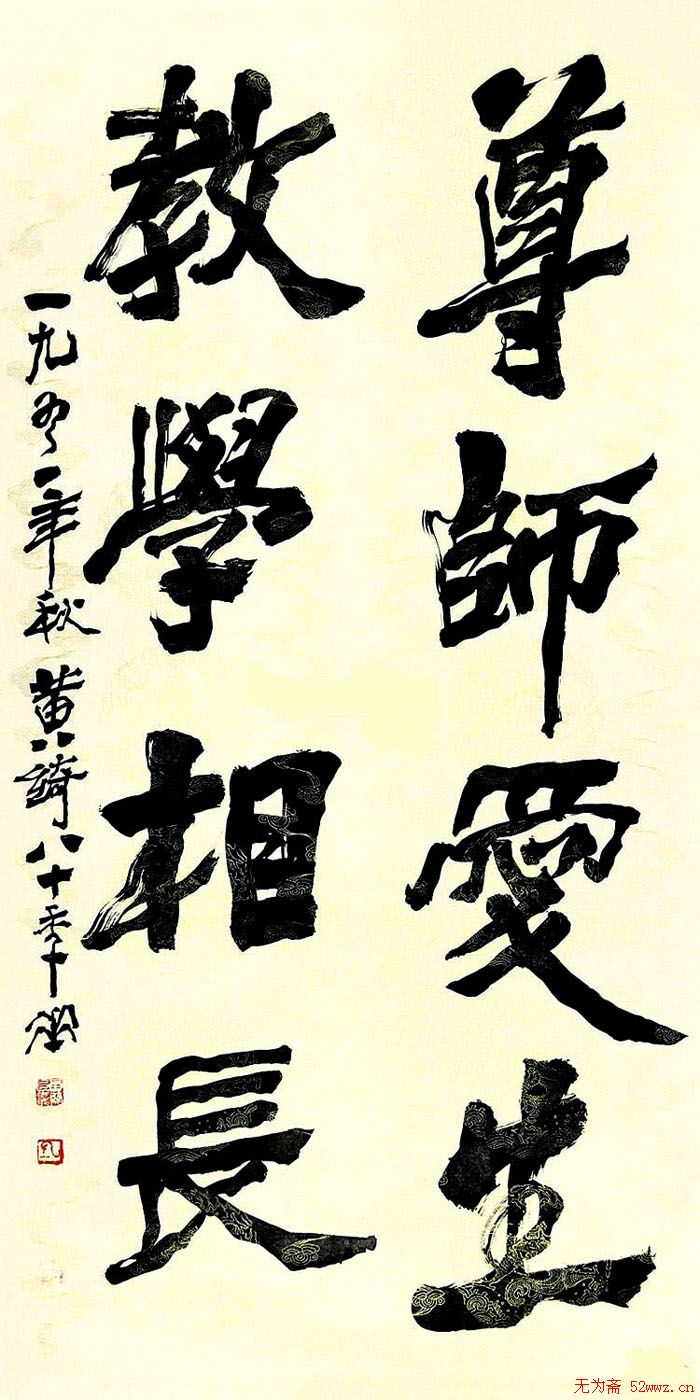 尊師愛生
教學相長
一九九一年秋黃綺八十季
无为斋 52wwz.cn